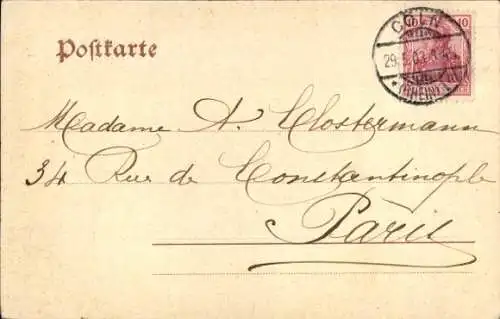 Postkarte
CÖLN
10
(RHEIN)
Madame A. Clostermann
34 Rue de Constantinople
Paris